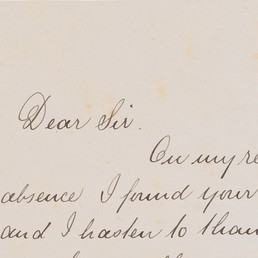 Dear Sir.
On my re
absence I found your
and I hasten to than